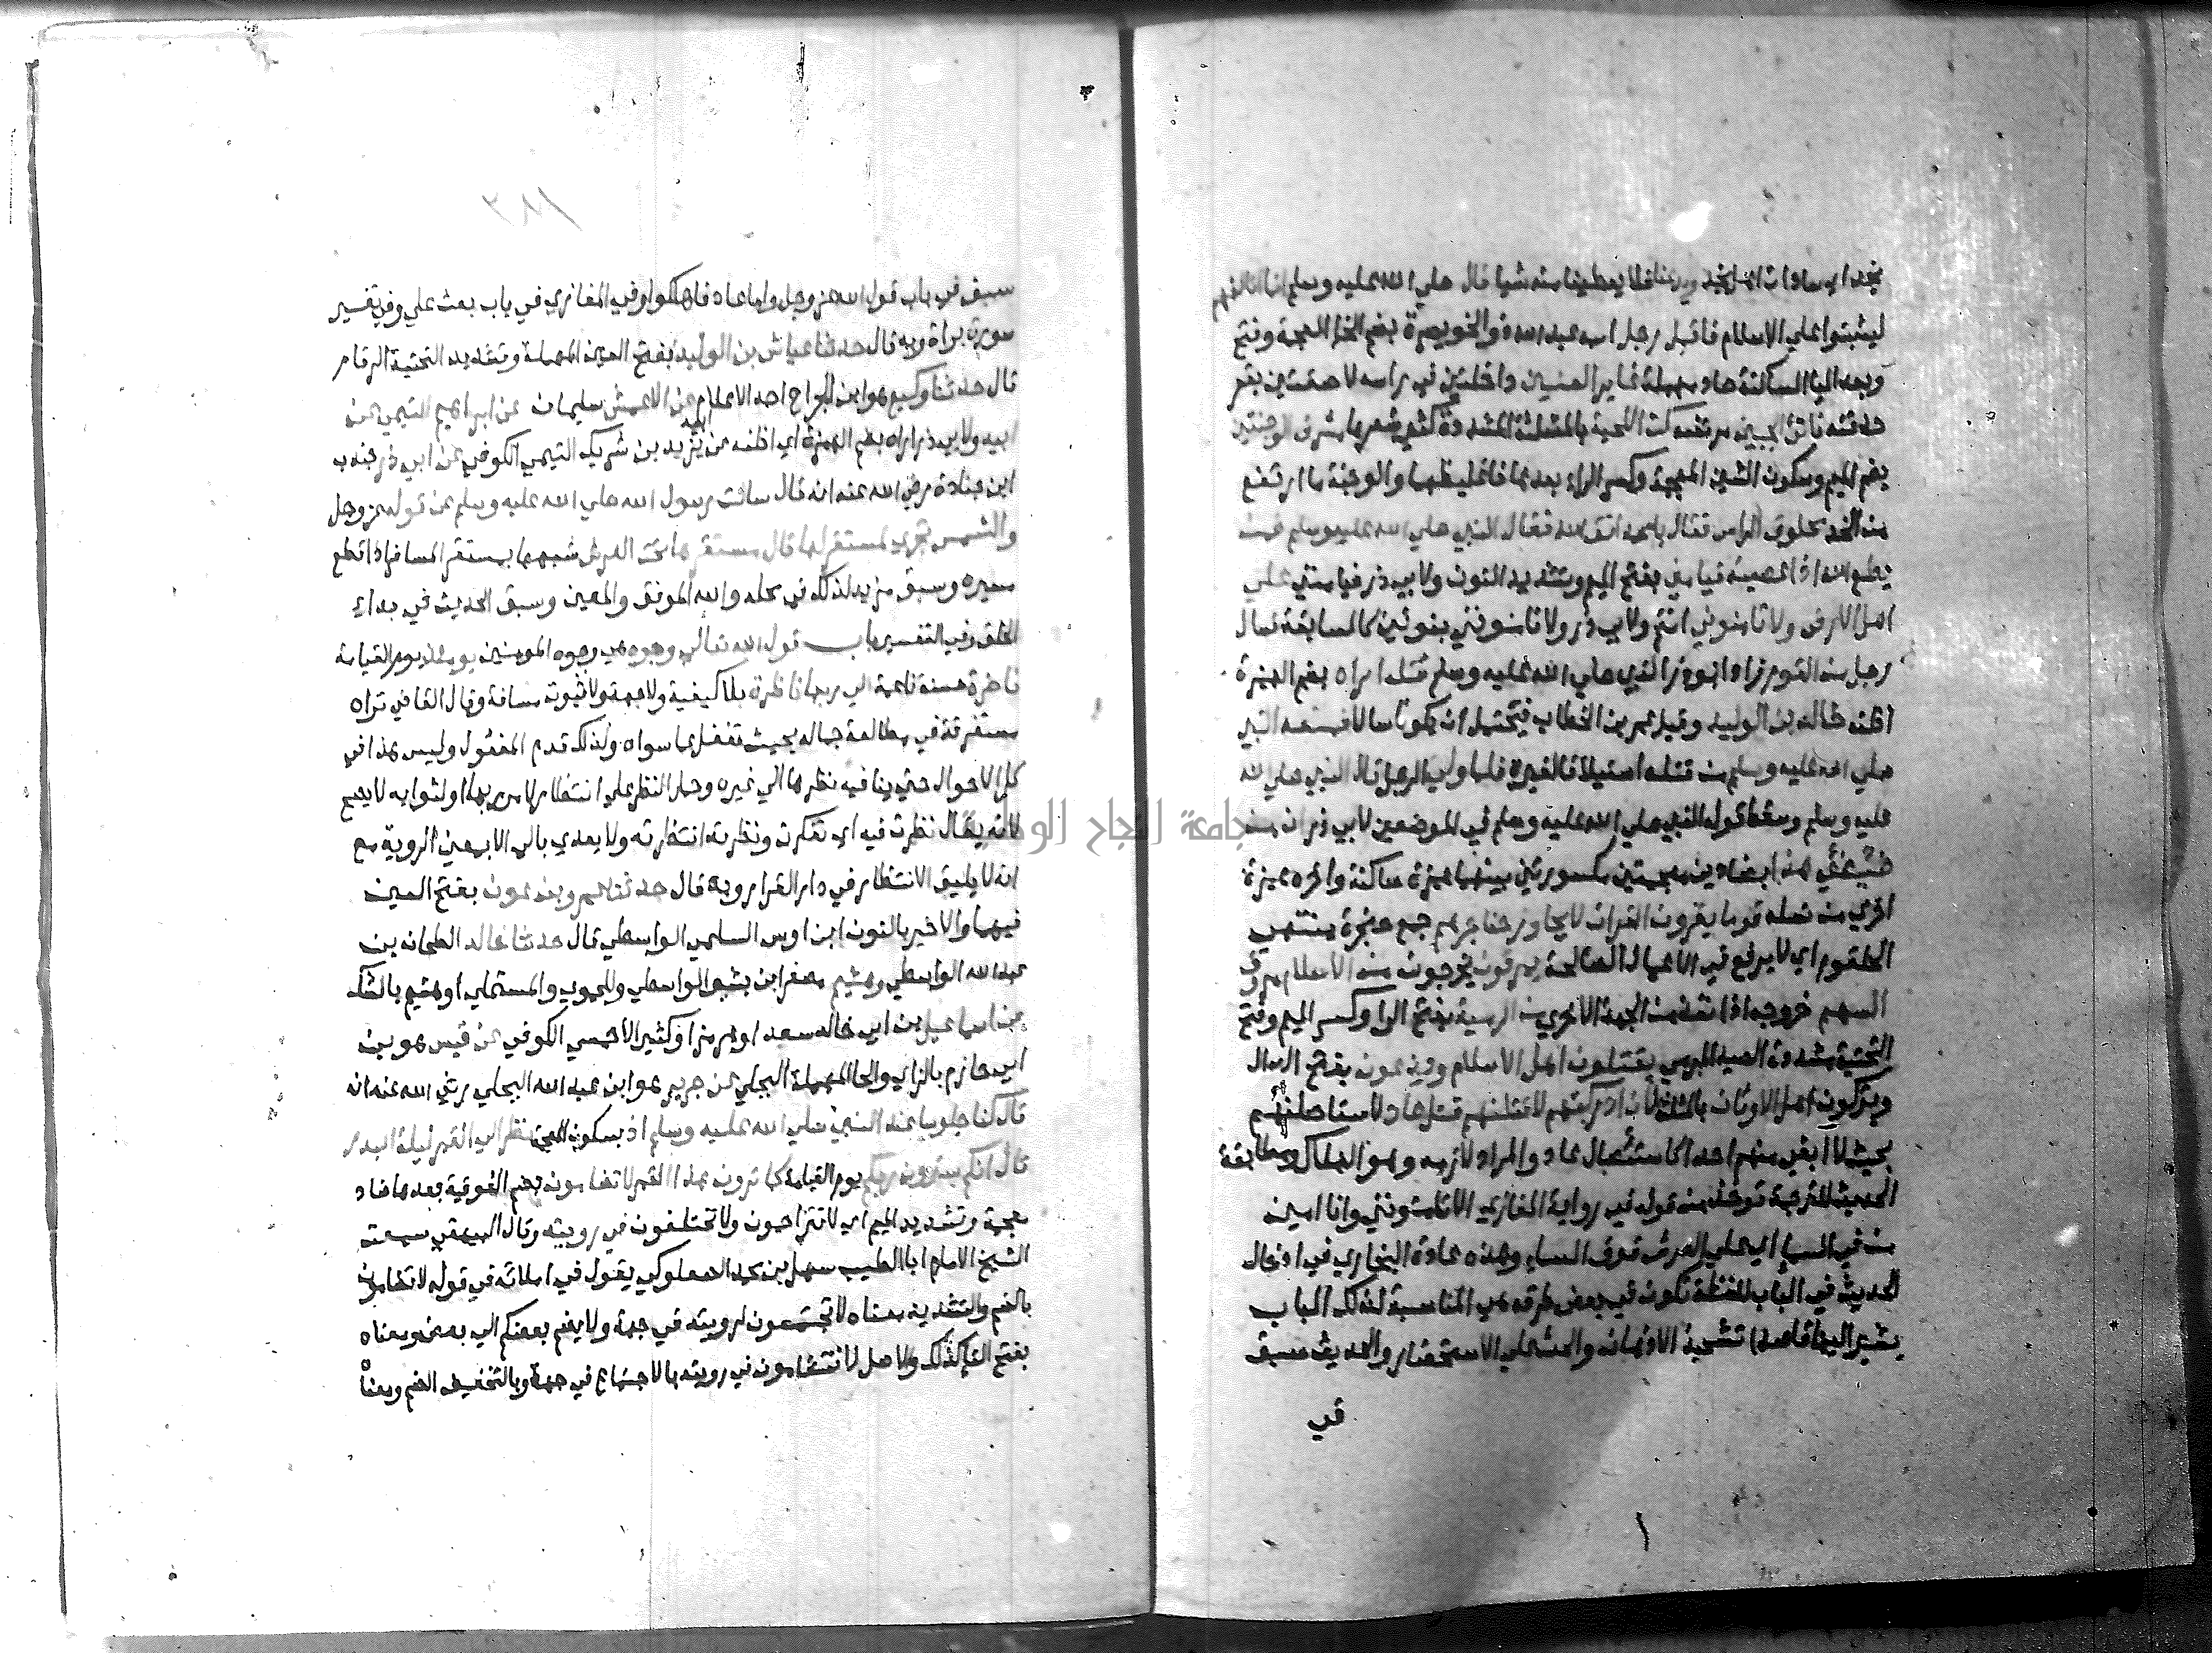 نجد اي سادات اهل نجد ويدعنا فلا يعطينا منه شيا قال صلي الله عليه وسلم انما اتالفهم
ليثبتوا علي الاسلام فاقبل رجل اسمه عبد الله ذو الخويصرة بضم الخا المعجمة وفتح
وبعد اليا الساكنة صاد مهملة غاير العينين داخلتين في راسه لاصقتين بقعر
حدقته ناتي الجبين مرتفعه كث اللحية بالمثلثة المشددة كثير شعرها مشرف الوجنتين
بضم الميم وسكون الشين المعجمة وكسر الراء بعدها فا غليظهما والوجنة ما ارتفع
من الخد محلوق الراس فقال يا محمد اتق الله فقال النبي صلي الله عليه وسلم فمن
يطع الله اذا عصيته فيامني بفتح الميم وتشديد النون ولابي ذر فيامنني علي
اهل الارض ولا تامنوني انتم ولابي ذر ولا تامنونني بنونين كالسابقة فسال
رجل من القوم زاد ابو ذر النبي صلي الله عليه وسلم قتله اراه بضم الهمزة
اظنه خالد بن الوليد وقيل عمر بن الخطاب فيحتمل ان يكونا سالا فمنعه النبي
صلي الله عليه وسلم من قتله استيلافا لغيره فلما ولي الرجل قال النبي صلي الله
عليه وسلم وسقط قوله النبي صلي الله عليه وسلم في الموضعين لابي ذر ان من
ضئضئي هذا بضادين معجمتين مكسورتين بينهما همزة ساكنة واخره همزة
اخري من نسله قوما يقرون القران لا يجاوز حناجرهم جمع حنجرة منتهي
الحلقوم اي لا يرفع في الاعمال الصالحة يمرقون يخرجون من الاسلام مروق
السهم خروجه اذا نفذ من الجهة الاخري من الرمية بفتح الرا وكسر الميم وفتح
التحتية مشددة الصيد المرمي يقتلون اهل الاسلام ويدعون بفتح الدال
ويتركون اهل الاوثان بالمثلثة لان ادركتهم لاقتلنهم قتل عاد لاستاصلنهم
بحيث لا ابقي منهم احدا كاستئصال عاد والمراد لازمه وهو الهلاك ومطابقة
الحديث للترجمة توخذ من قوله في رواية المغازي الا تامنونني وانا امين
من في السماء اي علي العرش فوق السماء وهذه عادة البخاري في ادخال
الحديث في الباب للفظة تكون في بعض طرقه هي المناسبة لذلك الباب
يشير اليها قاصدا تشحيذ الاذهان والحث علي الاستحضار والحديث سبق
في
سبق في باب قول الله عز وجل واما عاد فاهلكوا وفي المغازي في باب بعث علي وفي تفسير
سورة براة وبه قال حدثنا عياش بن الوليد بفتح العين المهملة وتشديد التحتية الرقام
قال حدثنا وكيع هو ابن الجراح احد الاعلام عن الاعمش سليمان عن ابراهيم التيمي عن
ابيه ولابي ذر اراه بضم الهمزة اي اظنه عن يزيد بن شريك التيمي الكوفي عن ابي ذر جندب
ابن جنادة رضي الله عنه انه قال سالت رسول الله صلي الله عليه وسلم عن قوله عز وجل
والشمس تجري لمستقر لها قال مستقرها تحت العرش شبهها بمستقر المسافر اذا قطع
مسيره وسبق مزيد لذلك في محله والله الموفق والمعين وسبق الحديث في بداء
الخلق وفي التفسير باب قول الله تعالي وجوه هي وجوه المومنين يومئذ يوم القيامة
ناضرة حسنة ناعمة الي ربها ناظرة بلا كيفية ولا جهة ولا ثبوت مسافة وقال القاضي تراه
مستغرقة في مطالعة جماله بحيث تغفل عما سواه ولذلك قدم المفعول وليس هذا في
كل الاحوال حتي ينافيه نظرها الي غيره وحمل النظر علي انتظارها لامر ربها او لثوابه لا يصح
لانه يقال نظرت فيه اي تفكرت ونظرته انتظرته ولا يعدي بالي الا بمعني الروية مع
انه لا يليق الانتظار في دار القرار وبه قال حدثنا عمرو بن عون بفتح العين
فيهما والاخير بالنون ابن اوس السلمي الواسطي قال حدثنا خالد الطحان بن
عبد الله الواسطي وهشيم مصغر ابن بشير الواسطي وللحموي والمستملي او هشيم بالشك
عن اسماعيل بن ابي خالد سعد او هرمز او كثير الاحمسي الكوفي عن قيس هو بن
ابي حازم بالزاي والحا المهملة البجلي عن جرير هو ابن عبد الله البجلي رضي الله عنه انه
قال كنا جلوسا عند النبي صلي الله عليه وسلم اذ بسكون المعجمة نظر الي القمر ليلة البدر
قال انكم سترون ربكم يوم القيامة كما ترون هذا القمر لا تضامون بضم الفوقية بعدها ضاد
معجمة وتشديد الميم اي لا تتزاحمون ولا تختلفون في رويته وقال البيهقي سمعت
الشيخ الامام ابا الطيب سهل بن محمد الصعلوكي يقول في املائه في قوله لا تضامون
بالضم والتشديد معناه لا تجتمعون لرويته في جهة ولا يضم بعضكم الي بعض ومعناه
بفتح التا كذلك والاصل لا تتضامون في رويته بالاجتماع في جهة وبالتخفيف الضم ومعناه